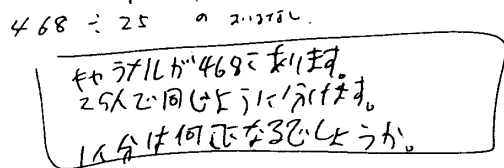 468÷25 のおはなし
キャラメルが468こあります。
25人で同じように分けます。
1人分は何こになるでしょうか。